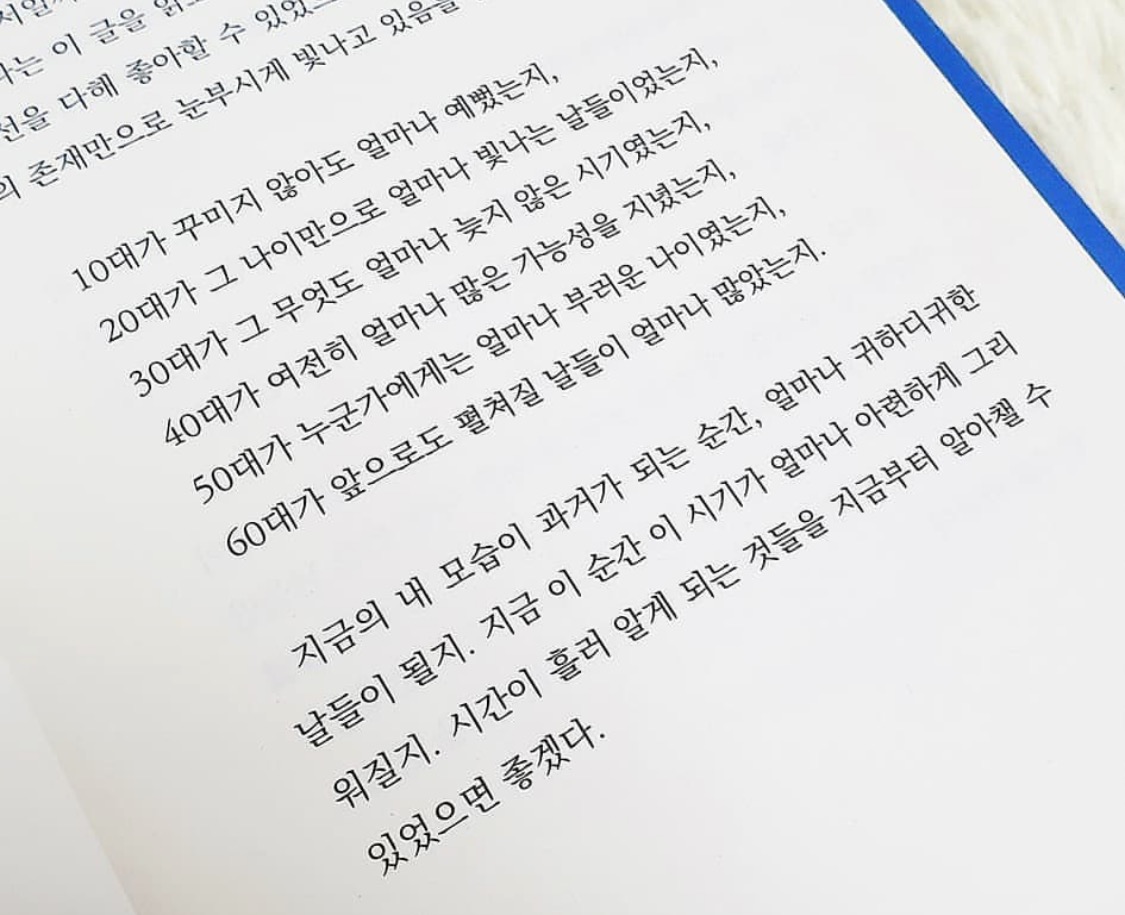 는 이 글을 읽
을 다해 좋아할 수 있었
존재만으로 눈부시게 빛나고 있음을
10대가 꾸미지 않아도 얼마나 예뻤는지,
20대가 그 나이만으로 얼마나 빛나는 날들이었는지,
30대가 그 무엇도 얼마나 늦지 않은 시기였는지,
40대가 여전히 얼마나 많은 가능성을 지녔는지,
50대가 누군가에게는 얼마나 부러운 나이였는지,
60대가 앞으로도 펼쳐질 날들이 얼마나 많았는지.
지금의 내 모습이 과거가 되는 순간, 얼마나 귀하디귀한
날들이 될지. 지금 이 순간 이 시기가 얼마나 아련하게 그리
워질지. 시간이 흘러 알게 되는 것들을 지금부터 알아챌 수
있었으면 좋겠다.